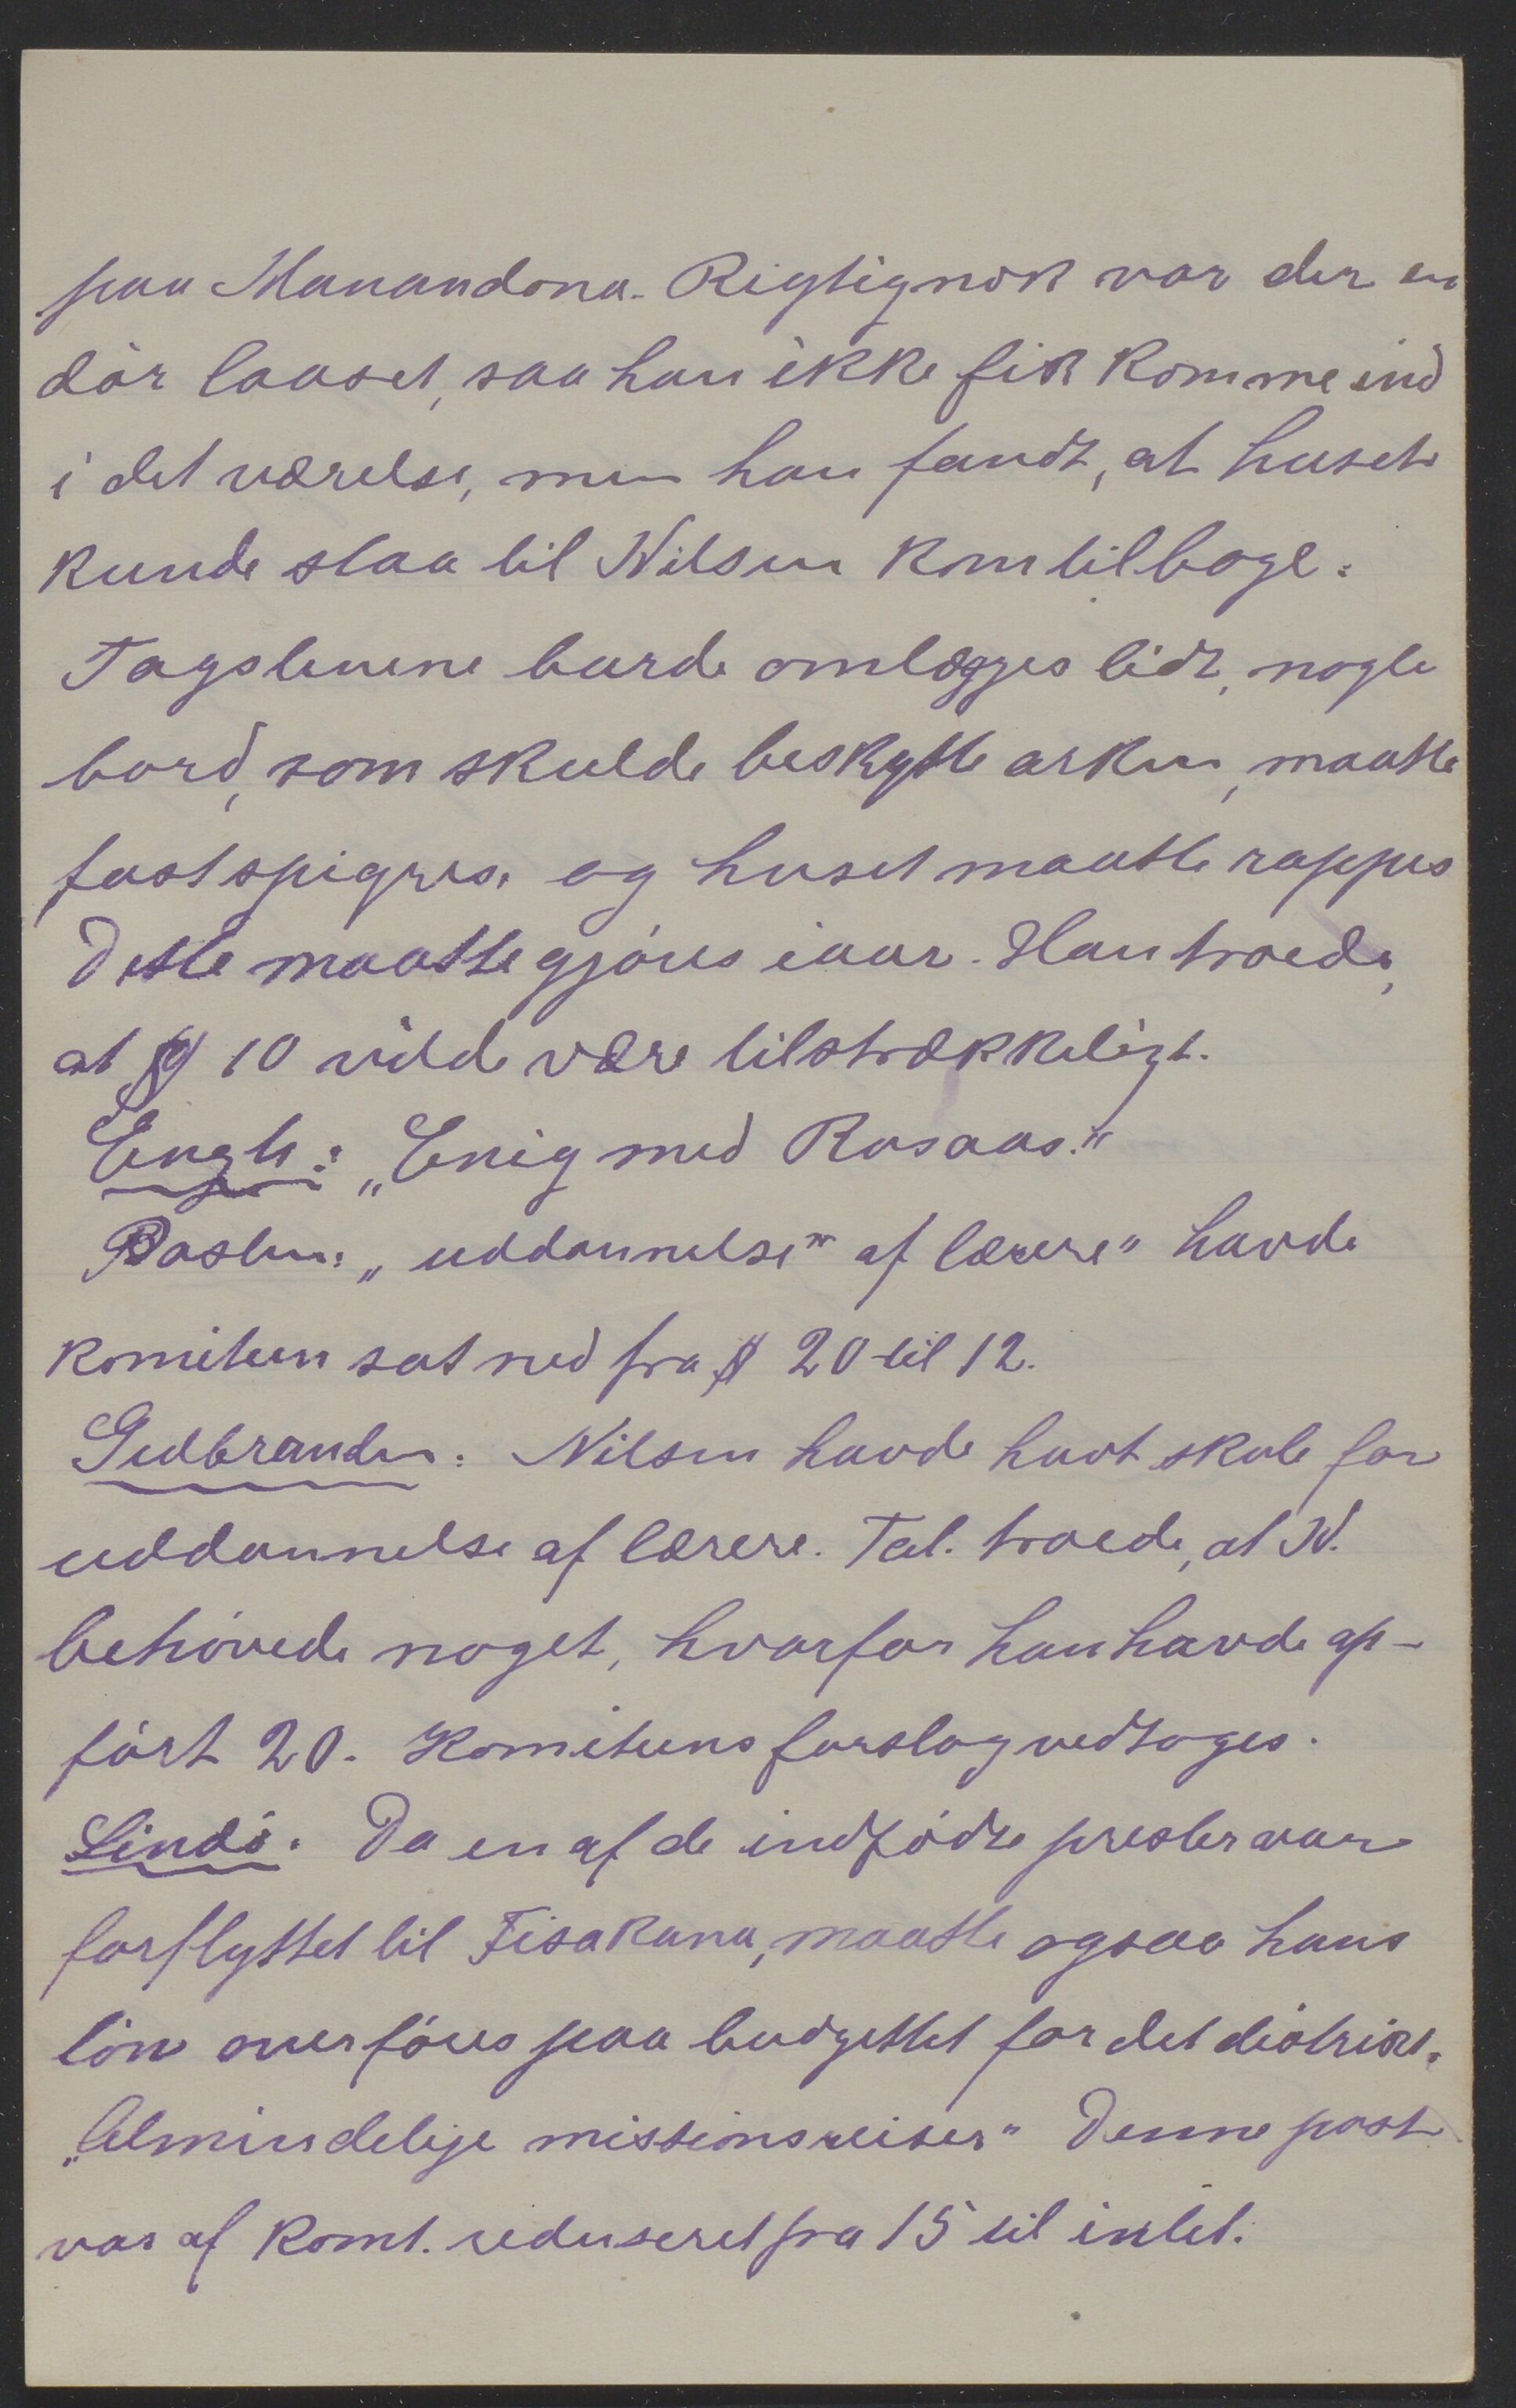 paa Manandona. Rigtignok var der en
dör laaset, saa han ikke fik komme ind
i det værelse, men han fandt, at huset
kunde staa til Nilsen kom tilbage.
Tagstenene burde omlægges lidt, nogle
bord, som skulde beskytte arken, maatte
fastspigres. og huset maatte rappes
Dette maatte gjöres iaar. Han troede,
at $ 10 vilde være tilstrækkeligt.
Engh: „Enig med Rosaas."
Posten: „uddannelse" af lærere" havde
komiteen sat ned fra $ 20 til 12.
Gudbrandsen: Nilsen havde havt skole for
uddannelse af lærere. Tal. troede, at N.
behövede noget, hvorfor han havde op-
fört 20. Komiteens forslag vedtoges.
Lindö. Da en af de indfödte prester var
forflyttet til Fisakana, maatte ogsaa hans
lön overföres paa budgettet for det distrikt.
„Almindelige missionsreiser" Denne post
var af Komt. reduseret fra 15 til intet.